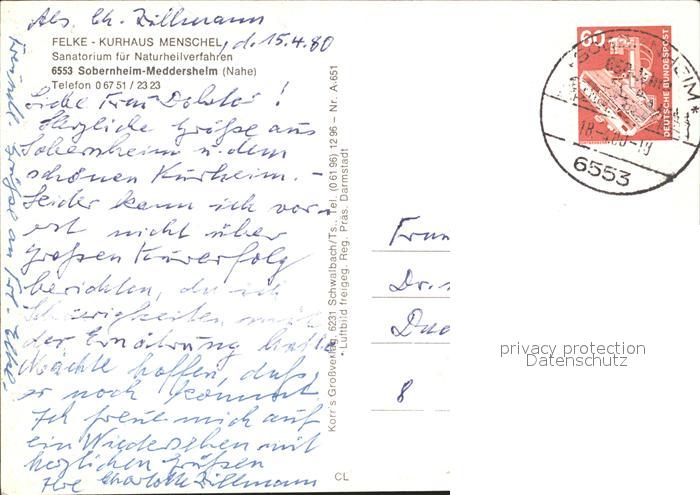 Abs. Ch. Zillmann
FELKE - KURHAUS MENSCHEL, d. 15.4.80
Sanatorium für Naturheilverfahren
6553 Sobernheim-Meddersheim (Nahe)
Telefon 0 67 51 / 23 23
Liebe Frau !
Herzliche Grüße aus
Sobernheim u. dem
schönen Kurheim. -
Leider kann ich vor-
erst nicht über
großen Kurerfolg
berichten, da ich
Schwierigkeiten mit
der Ernährung hatte
Möchte hoffen, daß
er noch kommt.
Ich freue mich auf
ein Wiedersehen mit
herzlichen Grüßen
Ihre Charlotte Zillmann
Grüße an Frl.
Korr's Großverlag, 6231 Schwalbach/Ts., Tel. (0 61 96) 12 96 – Nr. A-651
* Luftbild freigeg. Reg. Präs. Darmstadt
CL
60
DEUTSCHE BUNDESPOST
6553
Frau
Dr.
8
privacy protection
Datenschutz